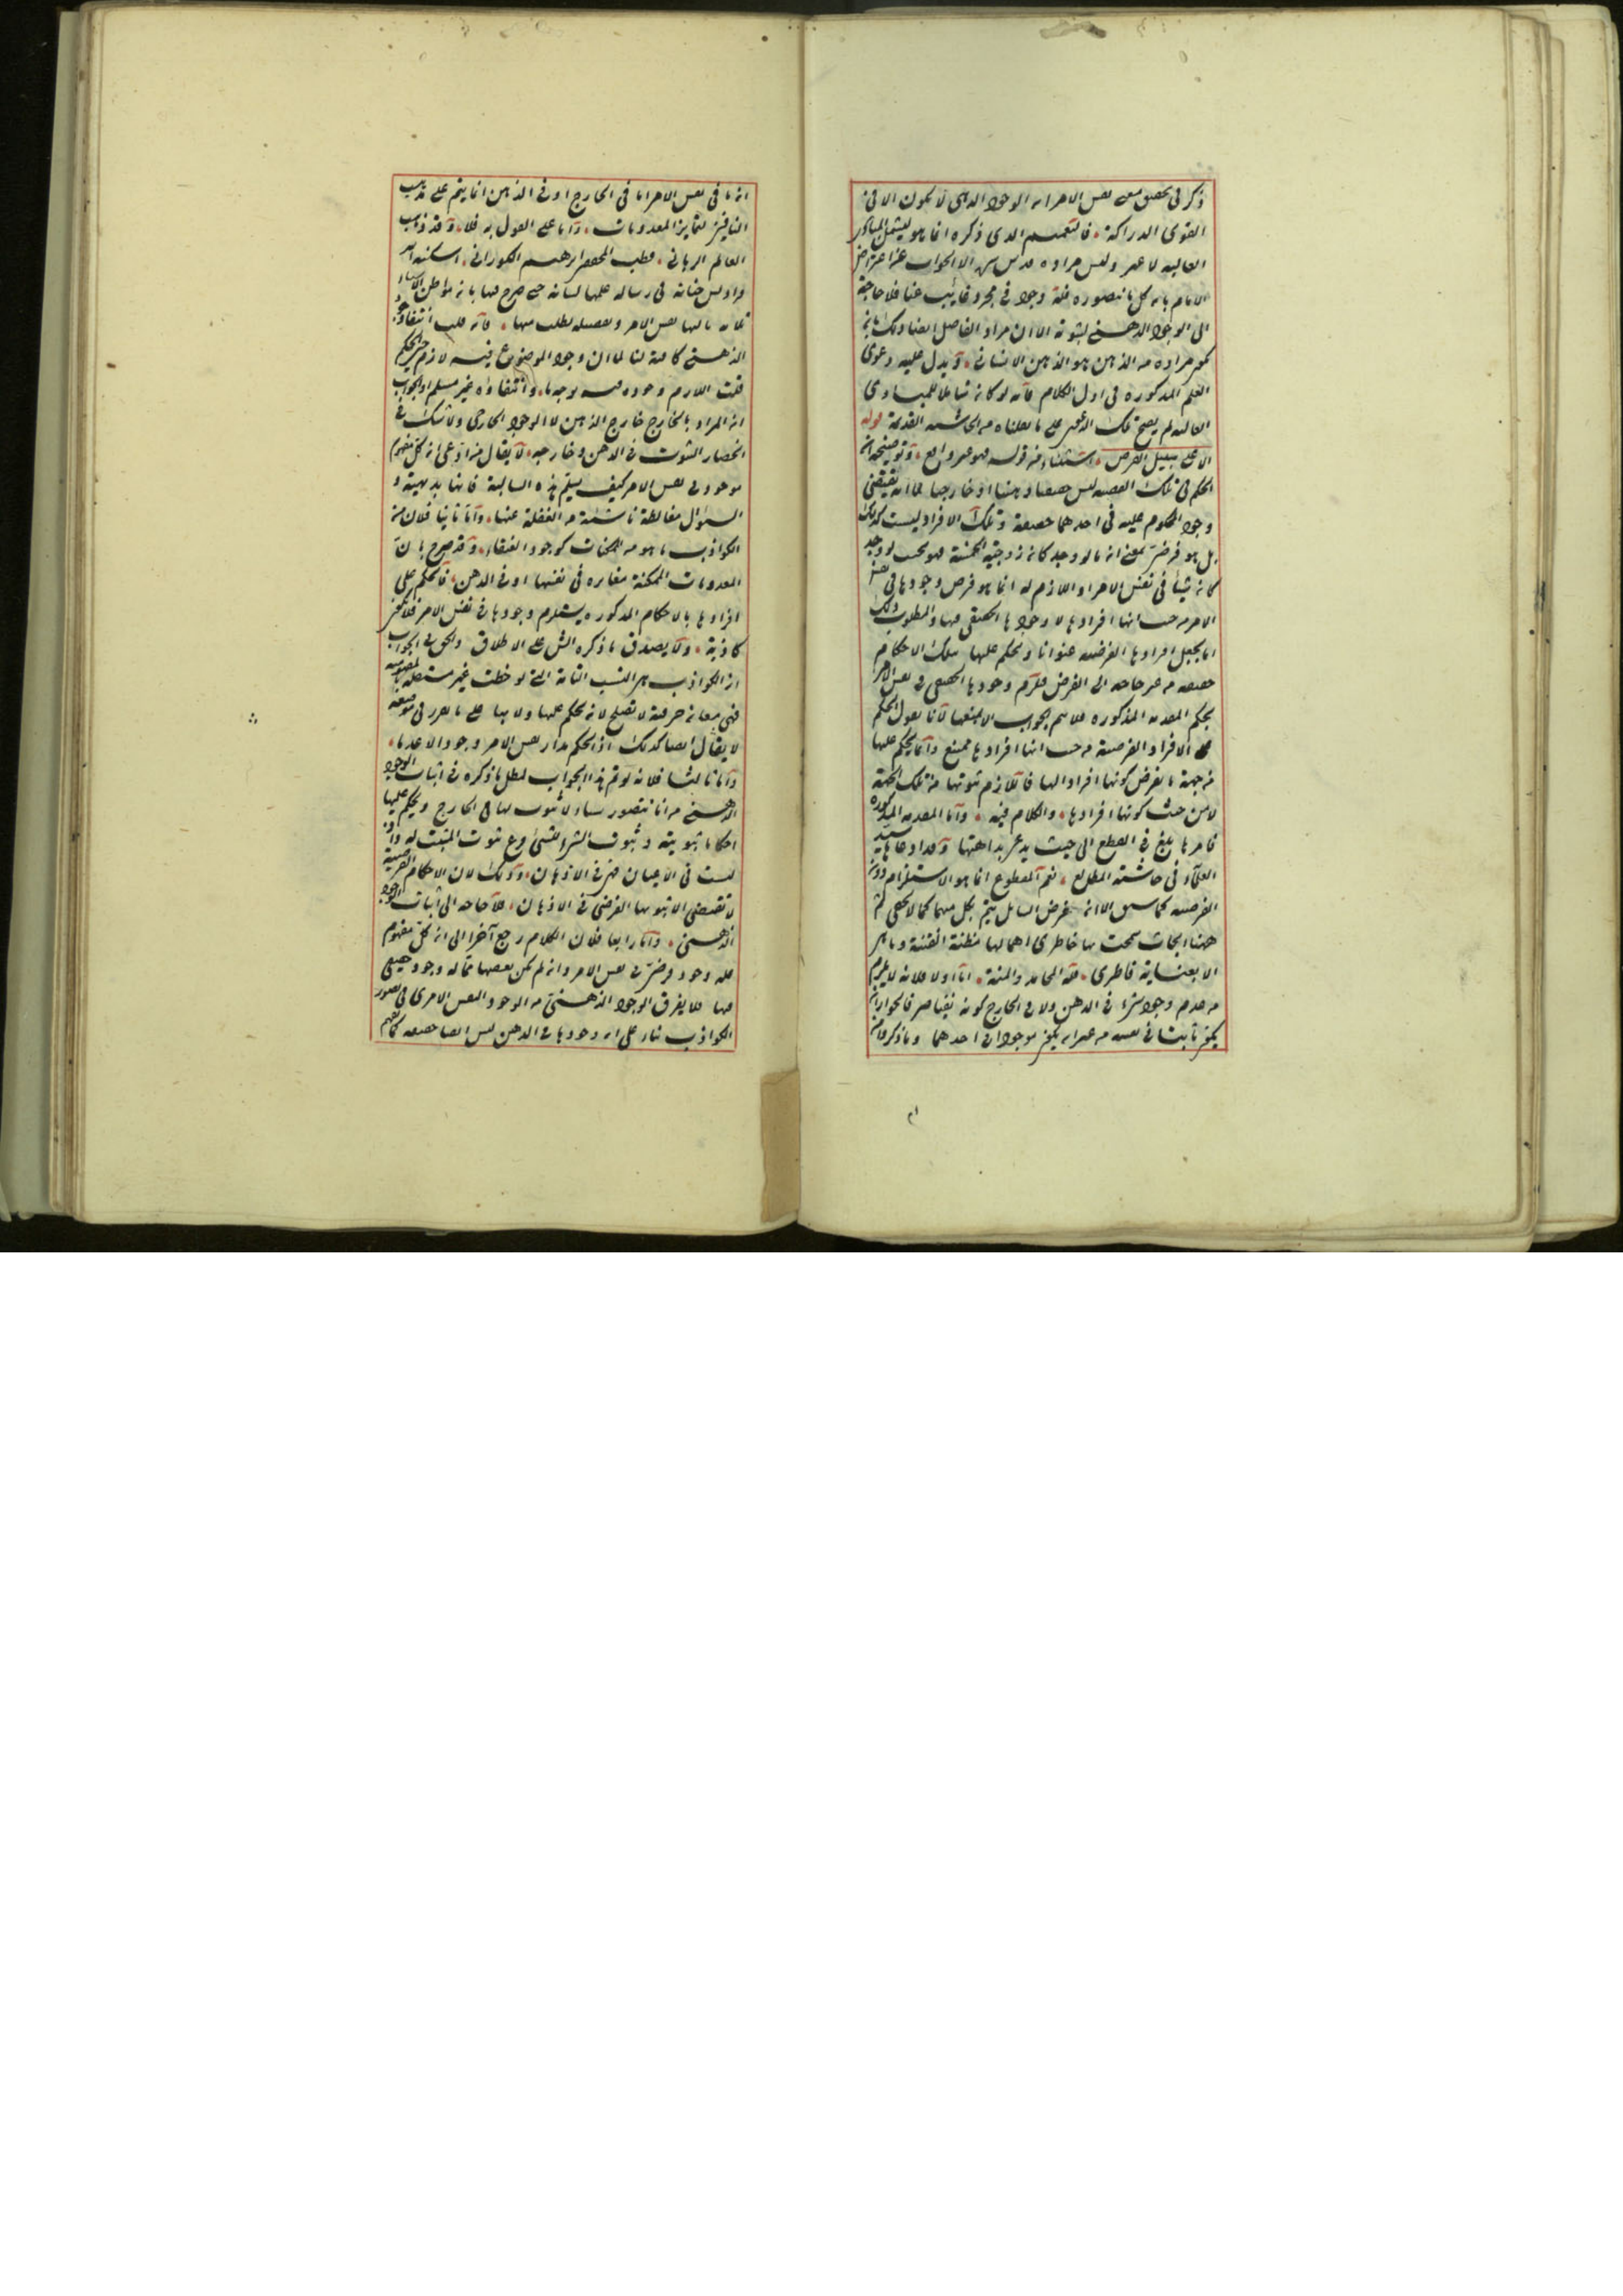 ذكر فى تحقيق معنى نفس الامر ان الوجود الذهنى لا يكون الا فى
القوى الدراكة فالتعميم الذى ذكره انما هو ليشمل المبادى
العاليه لا غير وليس مراده الا الجواب عن اعتراض
الامام بان كل ما نتصوره فله وجود فى مجرد غايب عنا فلا حاجة
الى الوجود الذهنى الا ان مراد الفاضل ايضا ذلك بان
يكون مراده من الذهن هو الذهن الانسانى ويدل عليه دعوى
العلم المذكوره فى اول الكلام فانه لو كان شاملا للمبادى
العاليه لم يصح تلك الدعوى على ما نقلناه من الحاشيه القديمة قوله
الا على سبيل الفرض استثناء من قوله فهو غير واقع وتوضيحه ان
الحكم فى تلك القضيه ليس حقيقيا ذهنيا او خارجيا لما انه يقتضى
وجود المحكوم عليه فى احدهما حقيقة وتلك الافراد ليست كذلك
بل هو فرضى بمعنى انه لو وجد كان زوجية الخمسة فهو بحيث لو وجد
كان شيئا فى نفس الامر واللازم له انما هو فرض وجودها فى نفس
الامر من حيث انها افرادها لا وجودها الحقيقى فيها والمطلوب ذلك
انا نجعل افرادها الفرضيه عنوانا ونحكم عليها بتلك الاحكام
حقيقه من غير حاجه الى الفرض فلزم وجودها الحقيقى فى نفس الامر
بحكم المقدمه المذكوره فلا يتم الجواب الا بمنعها لانا نقول الحكم
الافراد الفرضية من حيث انها افرادها ممنوع وانما يحكم عليها
من جهة ما يفرض كونها افرادا لها فاللازم ثبوتها من تلك الجهة
لا من حيث كونها افرادها والكلام فيه واما المقدمه المذكوره
فامرها بلغ فى القطع الى حيث يدعى بداهتها وقد ادعاها سيد
العلماء فى حاشية المطالع نعم المقطوع انما هو الاستلزام دون
الفرضيه كما سبق الا ان غرض السائل يتم بكل منهما كما لا يخفى ثم
ههنا ابحاث سمحت بها خاطرى اهمالها مظنة الفتنة وما هى
الا بعناية فاطرى فلله المحامد والمنة اما اولا فلانه لا يلزم
من عدم وجود شىء فى الذهن ولا فى الخارج كونه نفيا صرفا لجواز ان
يكون ثابتا فى نفسه من غير ان يكون موجودا فى احدهما وما ذكر من
ان ما فى نفس الامر اما فى الخارج او فى الذهن انما يتم على مذهب
النافين لتمايز المعدومات واما على القول به فلا وقد ذهب
العالم الربانى قطب المحققين ابرهيم الكورانى اسكنه الله
فراديس جنانه فى رساله عملها لبيانه حتى صرح فيها بان مواطن الاشياء
ثلاثه ثالثها نفس الامر وتفصيله يطلب منها فان قلت انتفاء وجود
الذهنى كافية لنا لما ان وجود الموضوع فيه لازم حين الحكم
قلت اللازم وجوده فيه بوجه ما وانتفاؤه غير مسلم او الجواب
ان المراد بالخارج خارج الذهن لا الوجود الخارجى ولا شك فى
انحصار الثبوت فى الذهن وخارجه لا يقال من ادعى ان كل مفهوم
موجود فى نفس الامر كيف يسلم هذه السالبة فانها بديهية و
السؤال مغالطة ناشئة من الغفلة عنها واما ثانيا فلان من
الكواذب ما هو من الممكنات كوجود العنقاء وقد صرح بان
المعدومات الممكنة متمايزه فى نفسها او فى الذهن فالحكم على
افرادها بالاحكام المذكوره يستلزم وجودها فى نفس الامر فلا تكون
كاذبة ولا يصدق ما ذكره الش على الاطلاق والحق فى الجواب
ان الكواذب هى النسب التامة التى لوحظت غير مستقله
فهى معان حرفية لا تصلح لان يحكم عليها ولا بها على ما تقرر فى موضعه
لا يقال ايضا كذلك اذ الحكم مدار نفس الامر وجودا وعدما
واما ثالثا فلانه لو تم هذا الجواب لبطل ما ذكره فى اثبات الوجود
الذهنى من انا نتصور اشياء لا ثبوت لها فى الخارج ونحكم عليها
احكاما ثبوتية وثبوت الشىء للشىء فرع ثبوت المثبت له واذ
ليست فى الاعيان فهى فى الاذهان وذلك لان الاحكام الفرضية
لا تقتضى الا ثبوتها الفرضى فى الاذهان فلا حاجه الى اثبات الوجود
الذهنى واما رابعا فلان الكلام رجع آخرا الى ان كل مفهوم
فله وجود فرضى فى نفس الامر وان لم يكن بعضها مما له وجود حقيقى
فيها فلا يفرق الوجود الذهنى من الوجود النفس الامرى فى تصور
الكواذب بناء على ان وجودها فى الذهن ليس ايضا حقيقه كما يفهم